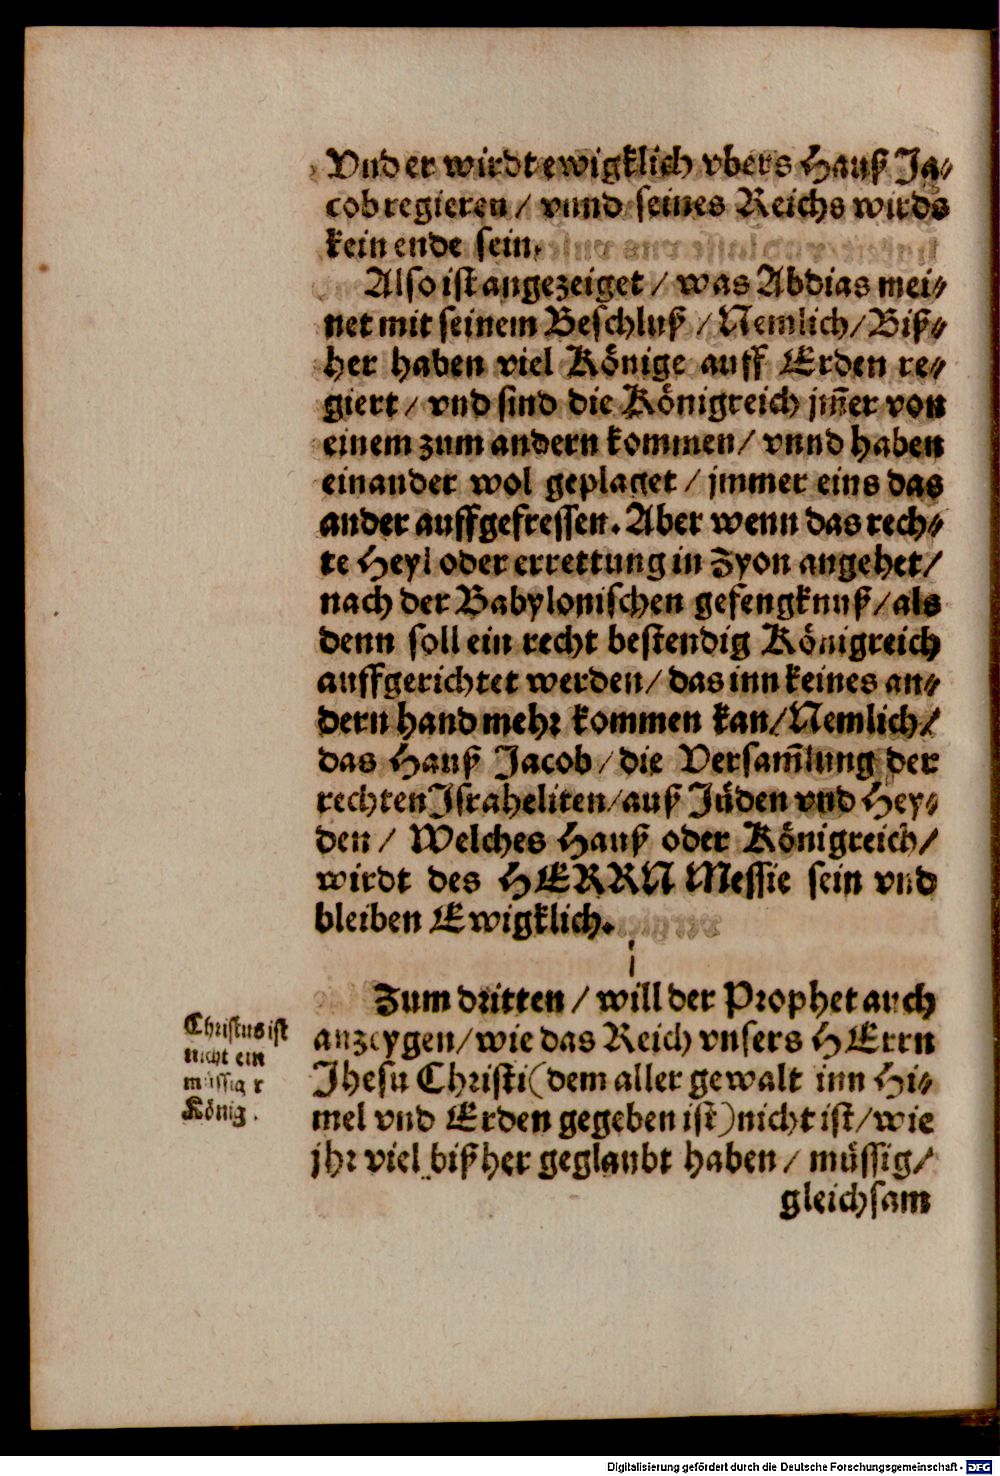 Vnd er wirdt ewigklich vbers Hauß Ja⸗
cob regieren / vnnd seines Reichs wirds
kein ende sein.
Also ist angezeiget / was Abdias mei⸗
net mit seinem Beschluß / Nemlich / Biß⸗
her haben viel Könige auff Erden re⸗
giert / vnd sind die Königreich jm̃er von
einem zum andern kommen / vnnd haben
einander wol geplaget / jmmer eins das
ander auffgefressen. Aber wenn das rech⸗
te Heyl oder errettung in Zyon angehet /
nach der Babylonischen gefengknuß / als
denn soll ein recht bestendig Königreich
auffgerichtet werden / das inn keines an⸗
dern hand mehr kommen kan / Nemlich /
das Hauß Jacob / die Versam̃lung der
rechten Israheliten / auß Jüden vnd Hey⸗
den / Welches Hauß oder Königreich /
wirdt des HERRN Messie sein vnd
bleiben Ewigklich.
Zum dritten / will der Prophet auch
anzeygen / wie das Reich vnsers HErrn
Jhesu Christi (dem aller gewalt inn Hi⸗
mel vnd Erden gegeben ist) nicht ist / wie
jhr viel bißher geglaubt haben / müssig /
gleichsam
Christus ist
nicht ein
müssiger
König.
Digitalisierung gefördert durch die Deutsche Forschungsgemeinschaft - DFG